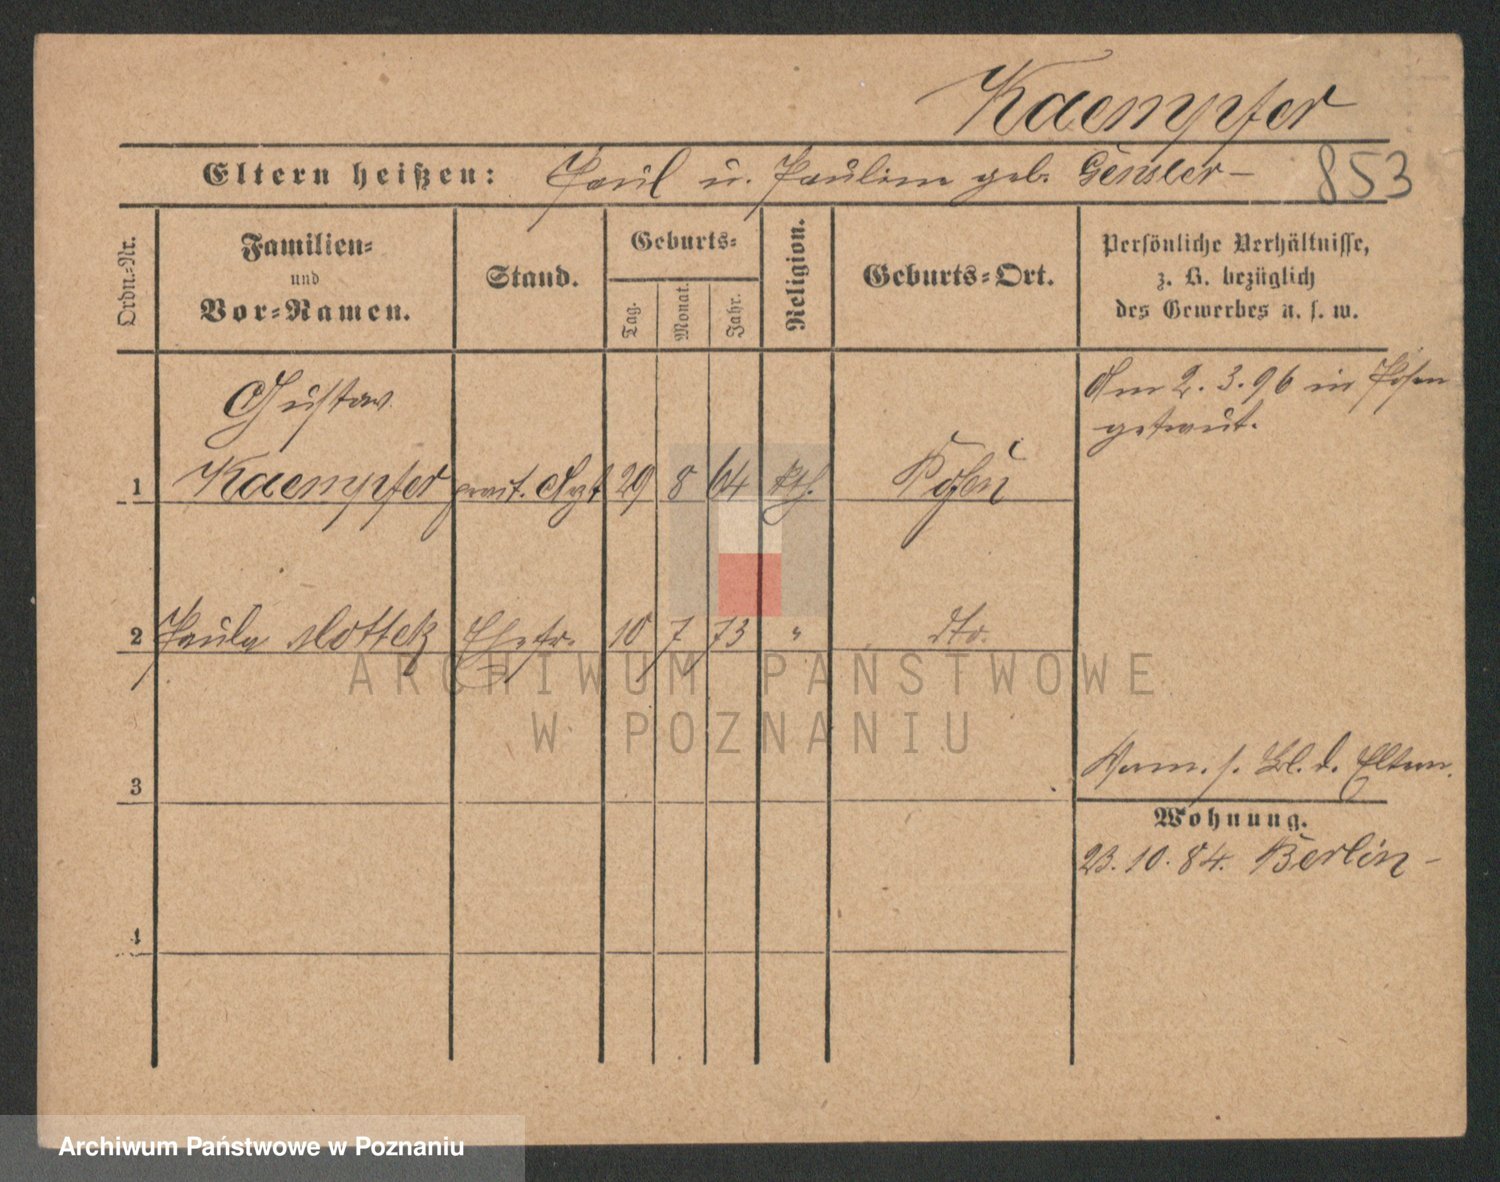 Kaempfer
Eltern heißen: Paul u. Pauline geb. Gensler – 853
Ordn.-Nr.
Familien-
und
Vor-Namen.
Stand.
Geburts-
Tag.
Monat.
Jahr.
Religion.
Geburts-Ort.
Persönliche Verhältnisse,
z. B. bezüglich
des Gewerbes u. s. w.
Am 2. 3. 96 in Posen
getraut.
Gustav
1 Kaempfer prakt. Arzt 29 8 64 Posen
2 Paula Mottek Ehefr. 10 7 73 " dto.
ARCHIWUM PAŃSTWOWE
W POZNANIU
3
Verm. s. Bl. d. Eltern.
Wohnung.
23. 10. 84. Berlin –
4
Archiwum Państwowe w Poznaniu